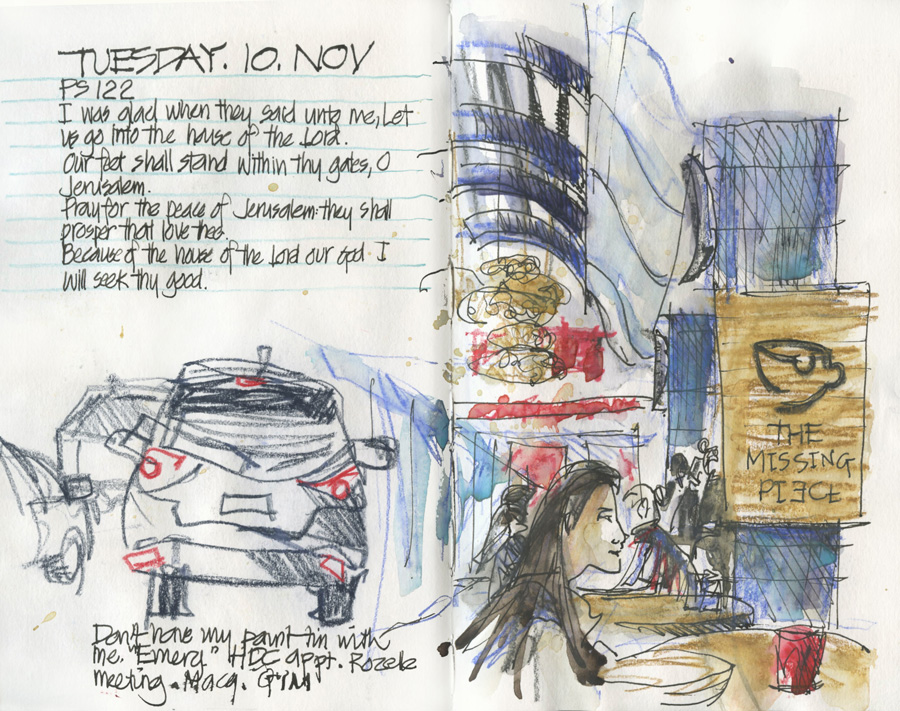 TUESDAY. 10. NOV
PS 122
I was glad when they said unto me, Let
us go into the house of the Lord.
Our feet shall stand within thy gates, O
Jerusalem.
Pray for the peace of Jerusalem: they shall
prosper that love thee.
Because of the house of the Lord our God I
will seek thy good.
THE
MISSING
PIECE
Don't have my paint tin with
me. "Emery" HDC appt. Rozelle
meeting. Macq.